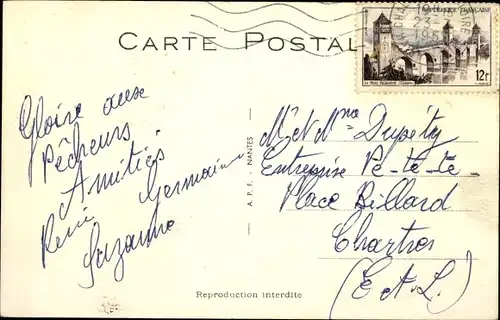 CARTE POSTALE
RÉPUBLIQUE FRANÇAISE
12F
Gloire aux
Pêcheurs
Amitiés
René Germaine
Suzanne
A. P. F. - NANTES
Mr et Mme Dupéty
Entreprise Pe-te-te-
Place Billard
Chartres
(E et L.)
Reproduction interdite